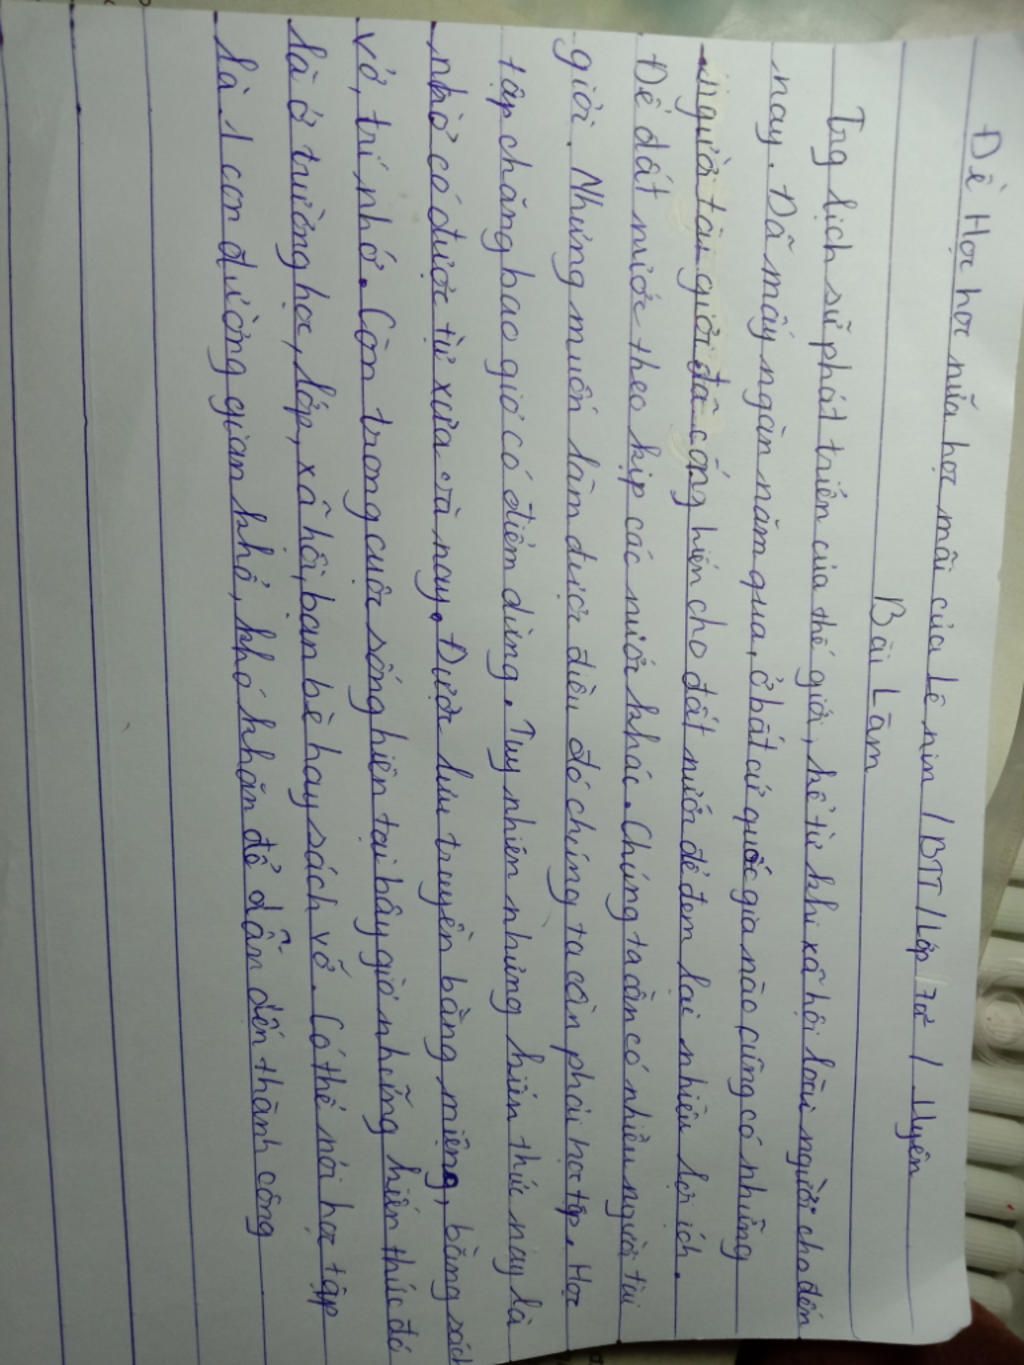 Đề Học học nữa học mãi của Lê nin / BTT / Lớp 7a² / Uyên
Bài Làm
Trg lịch sử phát triển của thế giới, kể từ khi xã hội loài người cho đến
nay. Đã mấy ngàn năm qua, ở bất cứ quốc gia nào cũng có những
người tài giỏi đã cống hiến cho đất nước để đem lại nhiều lợi ích.
Để đất nước theo kịp các nước khác. Chúng ta cần có nhiều người tài
giỏi. Nhưng muốn làm được điều đó chúng ta cần phải học tập. Học
tập chẳng bao giờ có điểm dừng. Tuy nhiên những kiến thức nay là
nhờ có được từ xưa và nay. Được lưu truyền bằng miệng, bằng sách
vở, trí nhớ. Còn trong cuộc sống hiện tại bây giờ những kiến thức đó
là ở trường học, lớp, xã hội, bạn bè hay sách vở. Có thể nói học tập
là 1 con đường gian khổ, khó khăn để dẫn đến thành công